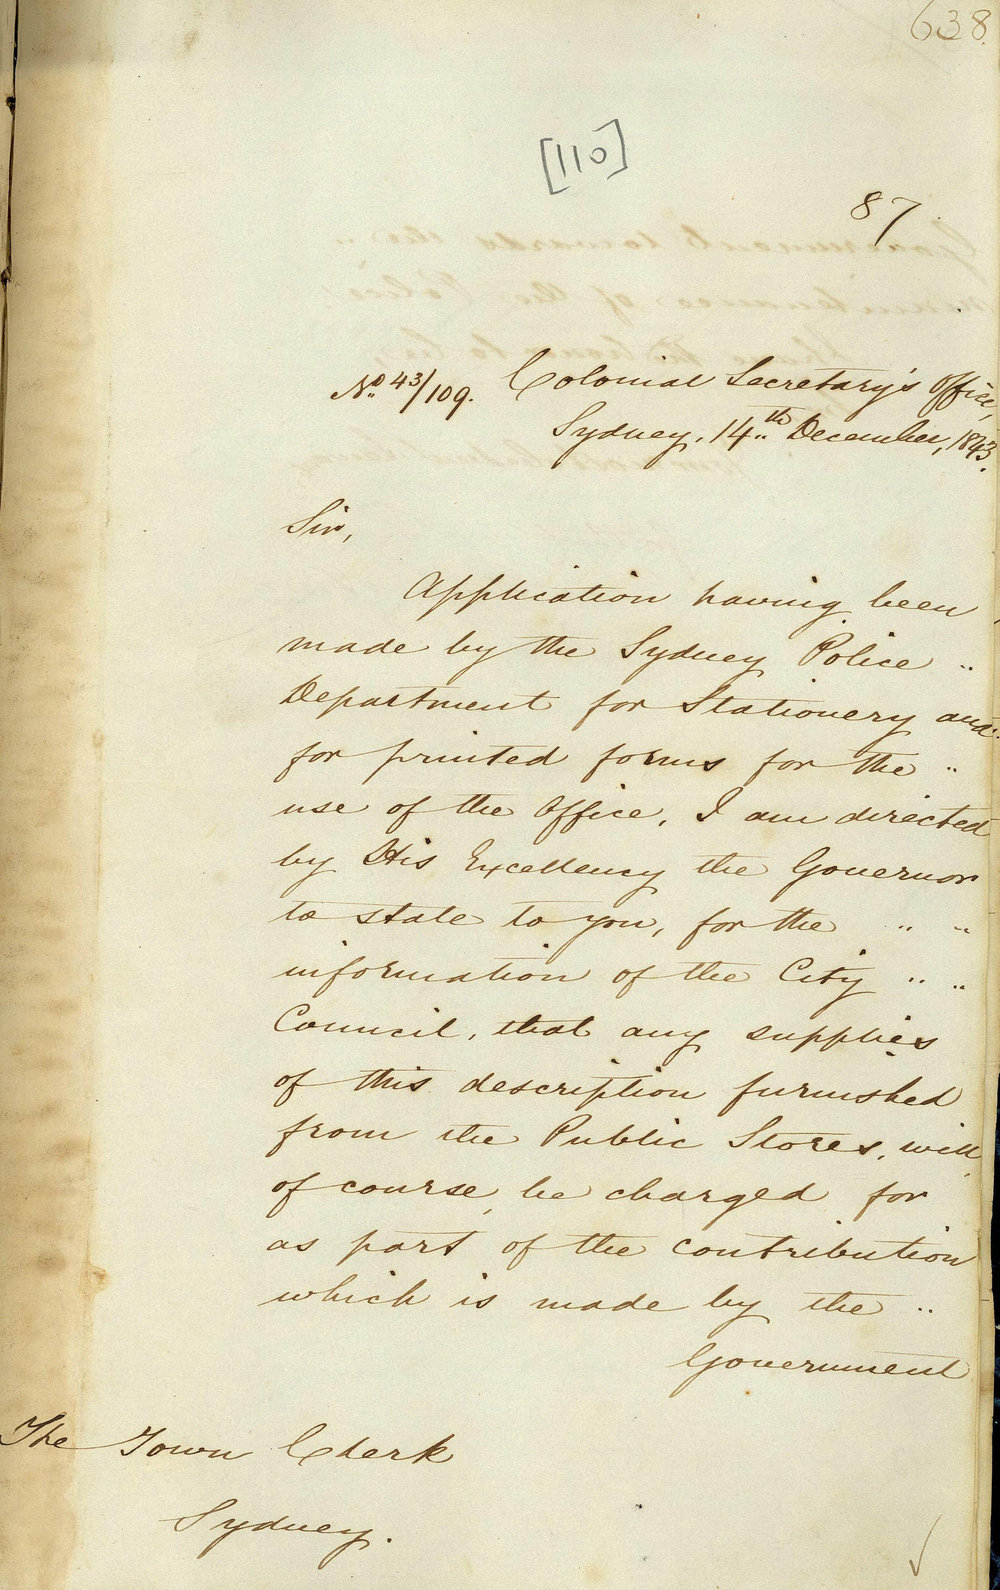 638
[110]
87
No. 43/109. Colonial Secretary's Office,
Sydney, 14th December, 1843.
Sir,
Application having been
made by the Sydney Police ..
Department for Stationery and ..
for printed forms for the ..
use of the Office, I am directed
by His Excellency the Governor
to state to you, for the .. ..
information of the City .. ..
Council, that any supplies
of this description furnished
from the Public Stores, will,
of course, be charged for
as part of the contribution
which is made by the ..
Government
The Town Clerk
Sydney.